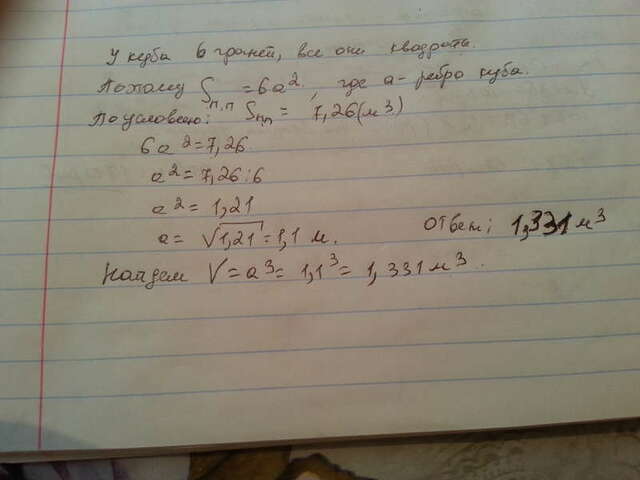 У куба 6 граней, все они квадраты.
Поэтому Sп.п = 6a², где a - ребро куба.
По условию: Sпп = 7,26 (м³)
6a² = 7,26
a² = 7,26 : 6
a² = 1,21
a = √1,21 = 1,1 м.
Ответ: 1,331 м³
Найдем V = a³ = 1,1³ = 1,331 м³.